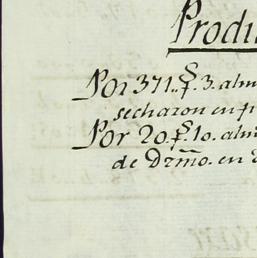 Produ
Por 371.. f.s 3. alm
secharon en p
Por 20. f.s 10. alm
de Dzmo. en